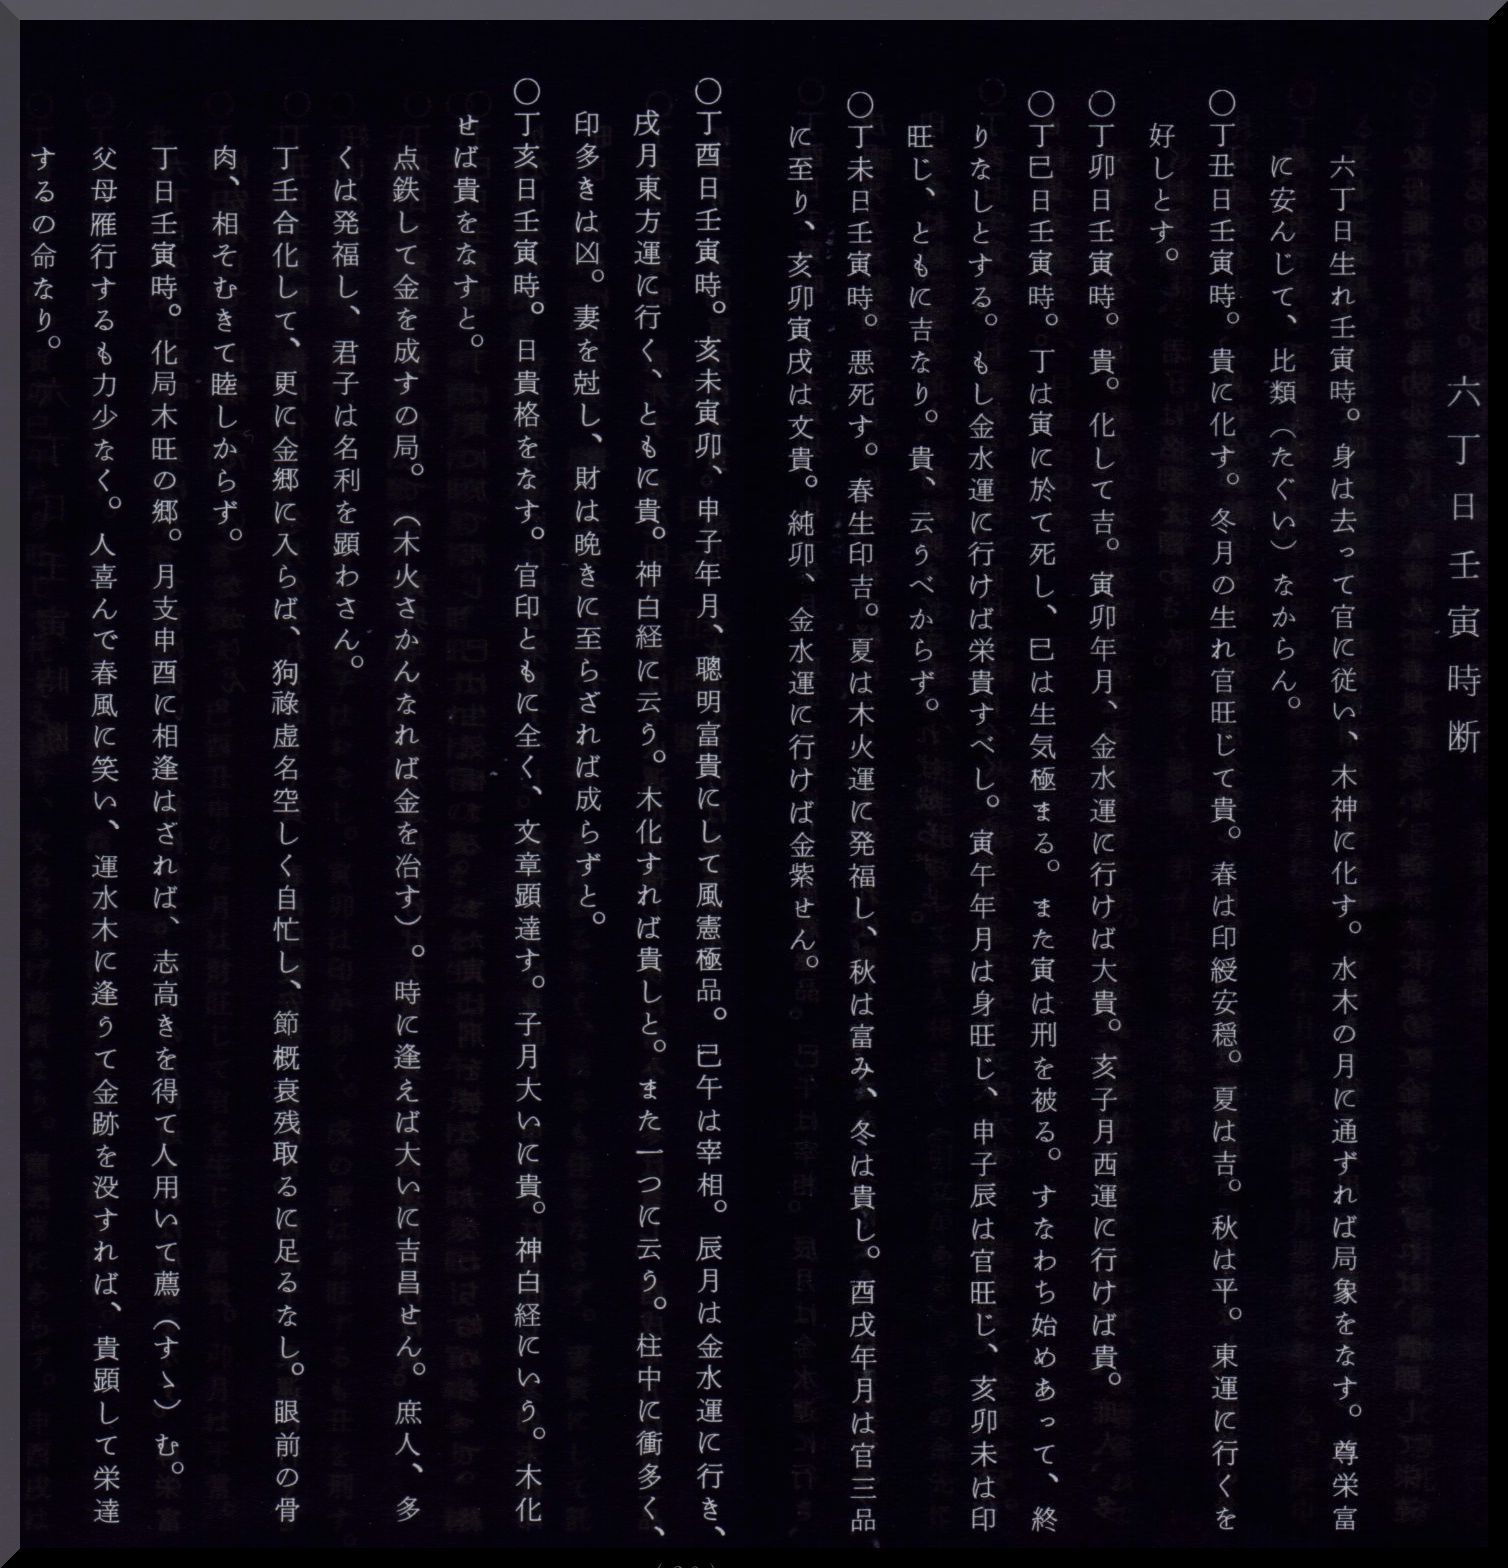 六丁日壬寅時断
六丁日生れ壬寅時。身は去って官に従い、木神に化す。水木の月に通ずれば局象をなす。尊栄富
に安んじて、比類(たぐい)なからん。
〇丁丑日壬寅時。貴に化す。冬月の生れ官旺じて貴。春は印綬安穏。夏は吉。秋は平。東運に行くを
好しとす。
〇丁卯日壬寅時。貴。化して吉。寅卯年月、金水運に行けば大貴。亥子月西運に行けば貴。
〇丁巳日壬寅時。丁は寅に於て死し、巳は生気極まる。また寅は刑を被る。すなわち始めあって、終
りなしとする。もし金水運に行けば栄貴すべし。寅午年月は身旺じ、申子辰は官旺じ、亥卯未は印
旺じ、ともに吉なり。貴、云うべからず。
〇丁未日壬寅時。悪死す。春生印吉。夏は木火運に発福し、秋は富み、冬は貴し。酉戌年月は官三品
に至り、亥卯寅戌は文貴。純卯、金水運に行けば金紫せん。
〇丁酉日壬寅時。亥未寅卯、申子年月、聰明富貴にして風憲極品。已午は宰相。辰月は金水運に行き、
戌月東方運に行く、ともに貴。神白経に云う。木化すれば貴しと。また一つに云う。柱中に衝多く、
印多きは凶。妻を尅し、財は晩きに至らざれば成らずと。
〇丁亥日壬寅時。日貴格をなす。官印ともに全く、文章顕達す。子月大いに貴。神白経にいう。木化
せば貴をなすと。
点鉄して金を成すの局。(木火さかんなれば金を冶す)。時に逢えば大いに吉昌せん。庶人、多
くは発福し、君子は名利を顕わさん。
丁壬合化して、更に金郷に入らば、狗祿虚名空しく自忙し、節概衰残取るに足るなし。眼前の骨
肉、相そむきて睦しからず。
丁日壬寅時。化局木旺の郷。月支申酉に相逢はざれば、志高きを得て人用いて薦(すゝ)む。
父母雁行するも力少なく。人喜んで春風に笑い、運水木に逢うて金跡を没すれば、貴顕して栄達
するの命なり。